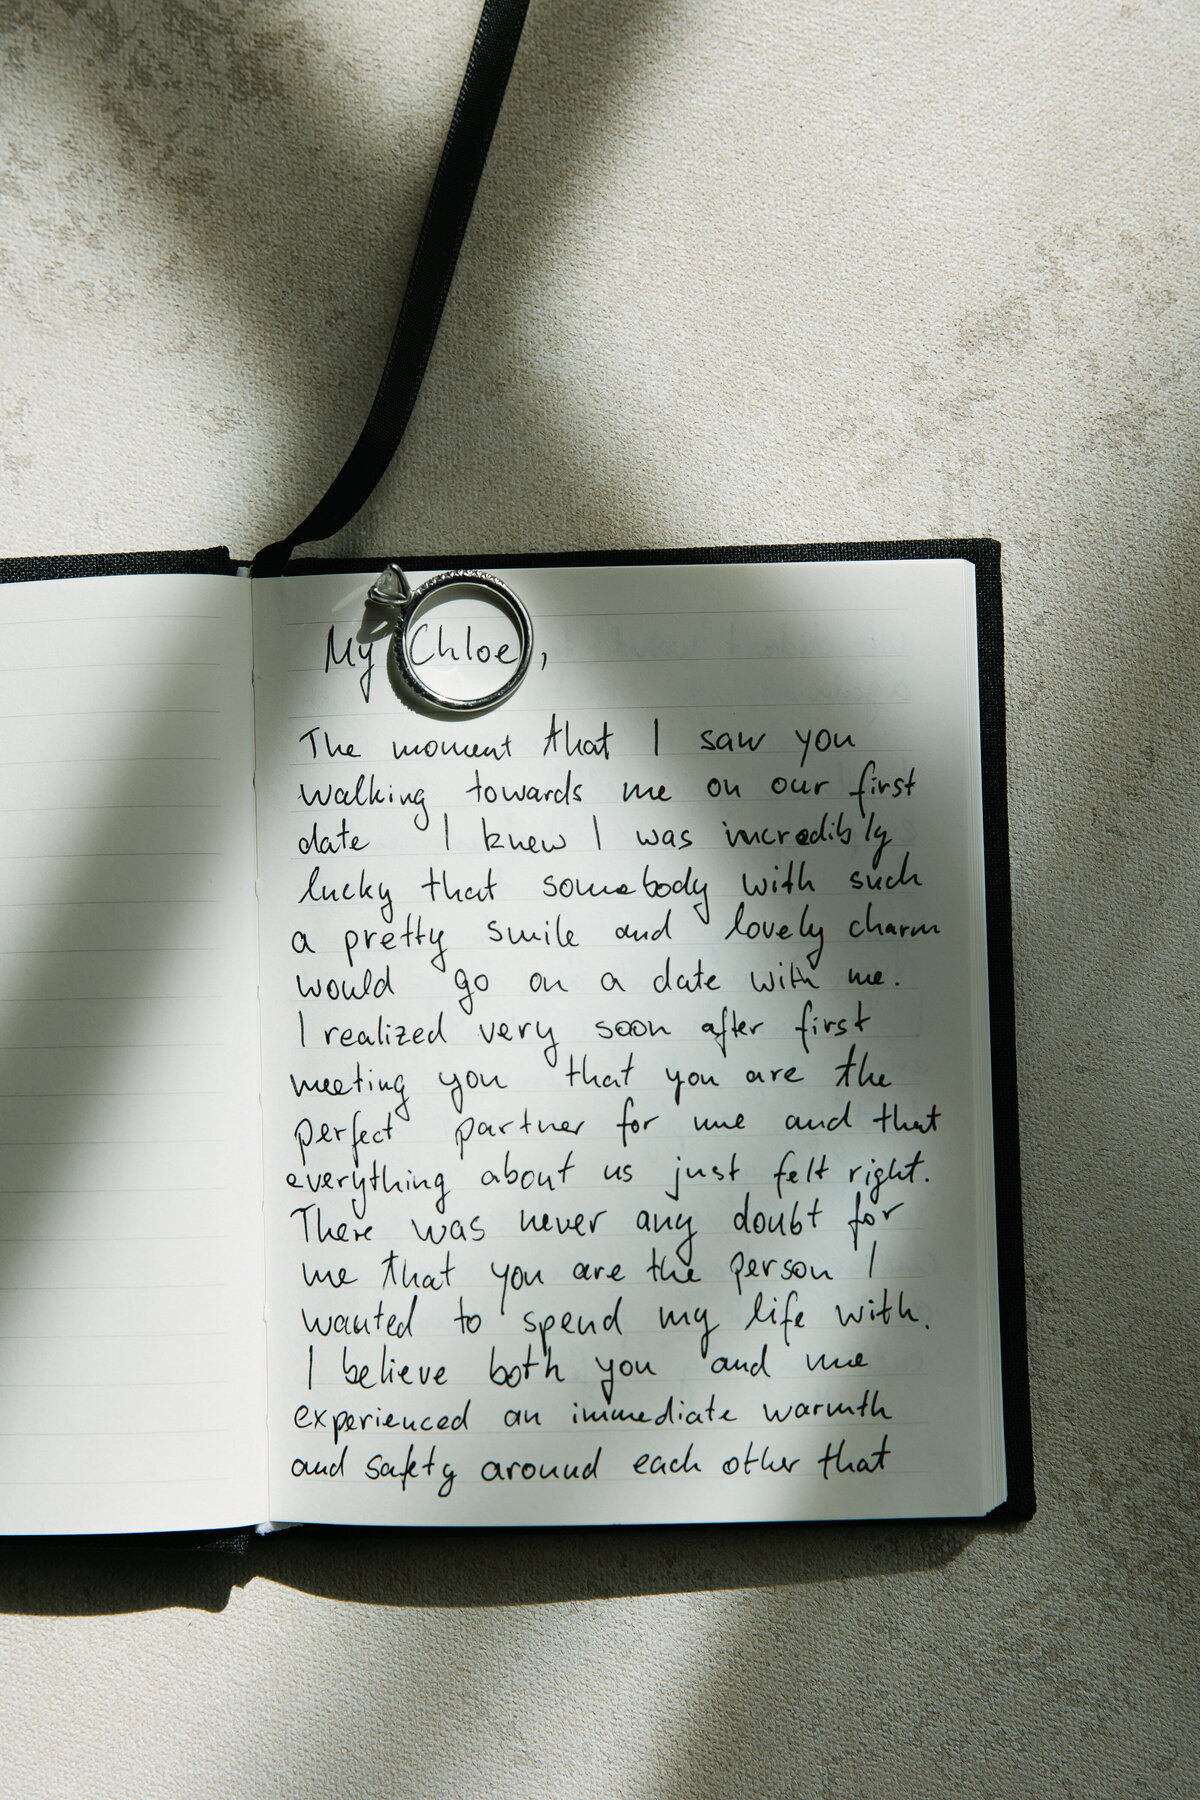 My Chloe,
The moment that I saw you
walking towards me on our first
date I knew I was incredibly
lucky that somebody with such
a pretty smile and lovely charm
would go on a date with me.
I realized very soon after first
meeting you that you are the
perfect partner for me and that
everything about us just felt right.
There was never any doubt for
me that you are the person I
wanted to spend my life with.
I believe both you and me
experienced an immediate warmth
and safety around each other that